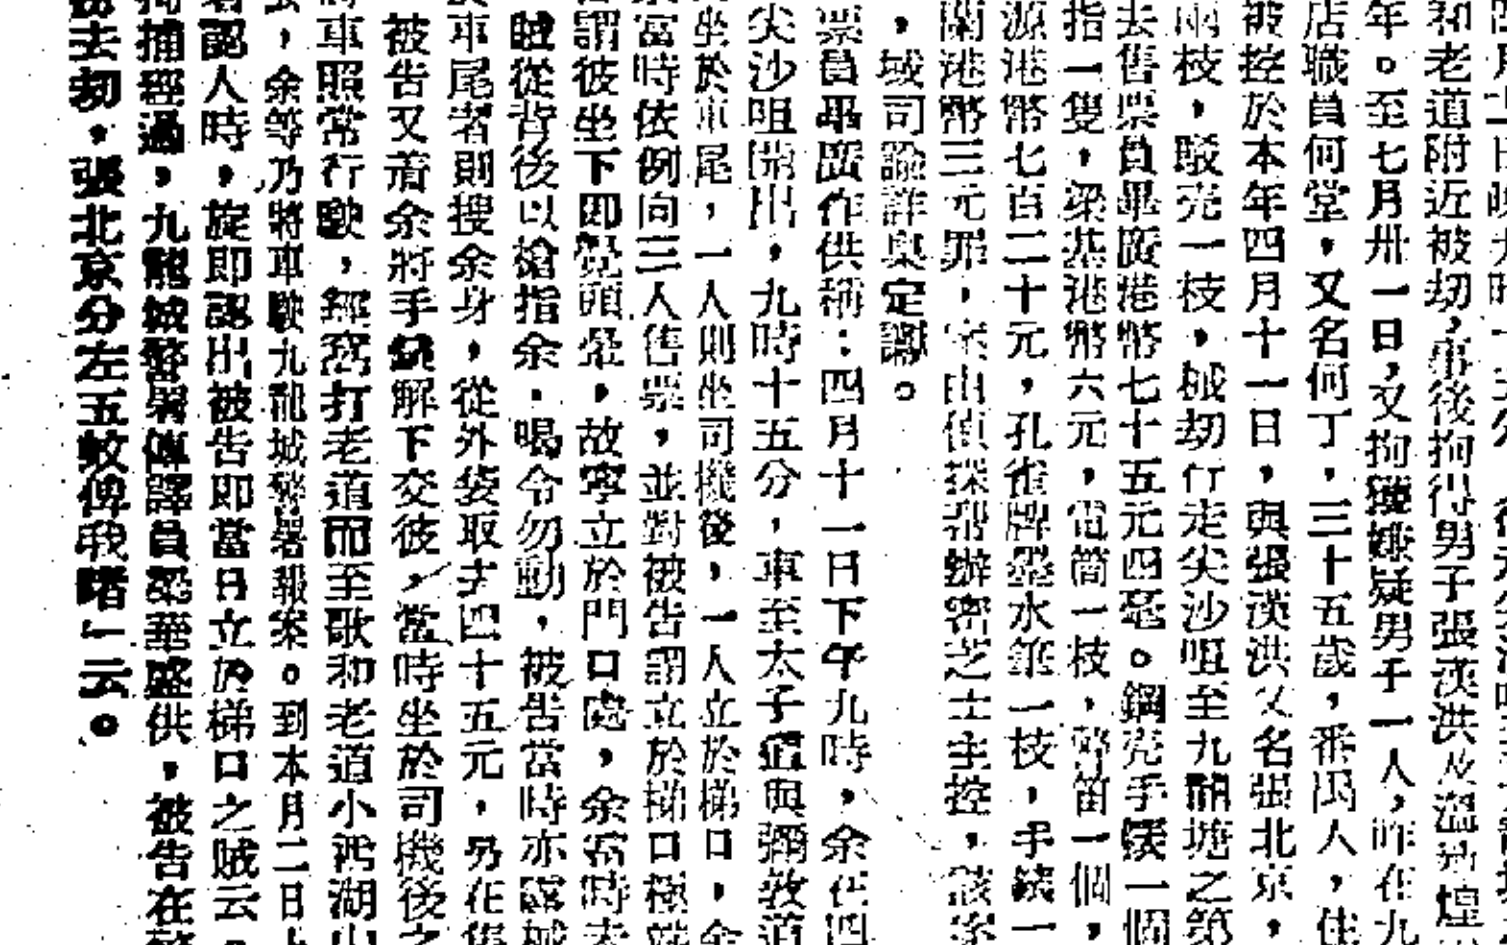 和老道附近被刧，事後拘得男子張漢洪及溫
年。至七月卅一日，又拘獲嫌疑男子一人，昨在九
店職員何堂，又名何丁，三十五歲，番禺人，住
被控於本年四月十一日，與張漢洪又名張北京，
枝，駁壳一枝，械刧行走尖沙咀至九龍塘之第
去售票員畢廣港幣七十五元四毫。鋼壳手鏢一個
指一隻，梁基港幣六元，電筒一枝，笛一個，
源港幣七百二十元，孔雀牌墨水筆一枝，手鏢一
蘭港幣三元罪，案由偵探幫辦密芝士主控，該案
，域司諭詳輿定讞。
票員畢廣作供稱：四月十一日下午九時，余在四
尖沙咀開出，九時十五分，車至太子道與彌敦道
坐於車尾，一人則坐司機後，一人立於梯口，余
當時依例向三人售票，並對被告謂立於梯口極
謂彼坐下即覺頭暈，故寧立於門口處，余當時去
賊從背後以槍指余，喝令勿動，被告當時亦露械
車尾者則搜余身，從外袋取去四十五元，另在售
被告又着余將手鏢解下交彼，當時坐於司機後之
車照常行駛，經窩打老道而至歌和老道小瀝湖山
，余等乃將車駛九龍城警署報案。到本月二日上
認人時，旋即認出被告即當日立於梯口之賊云。
拘捕經過，九龍城警署傳譯員梁華盛供，被告在警
去刧，張北京分左五蚊俾我啫」云。